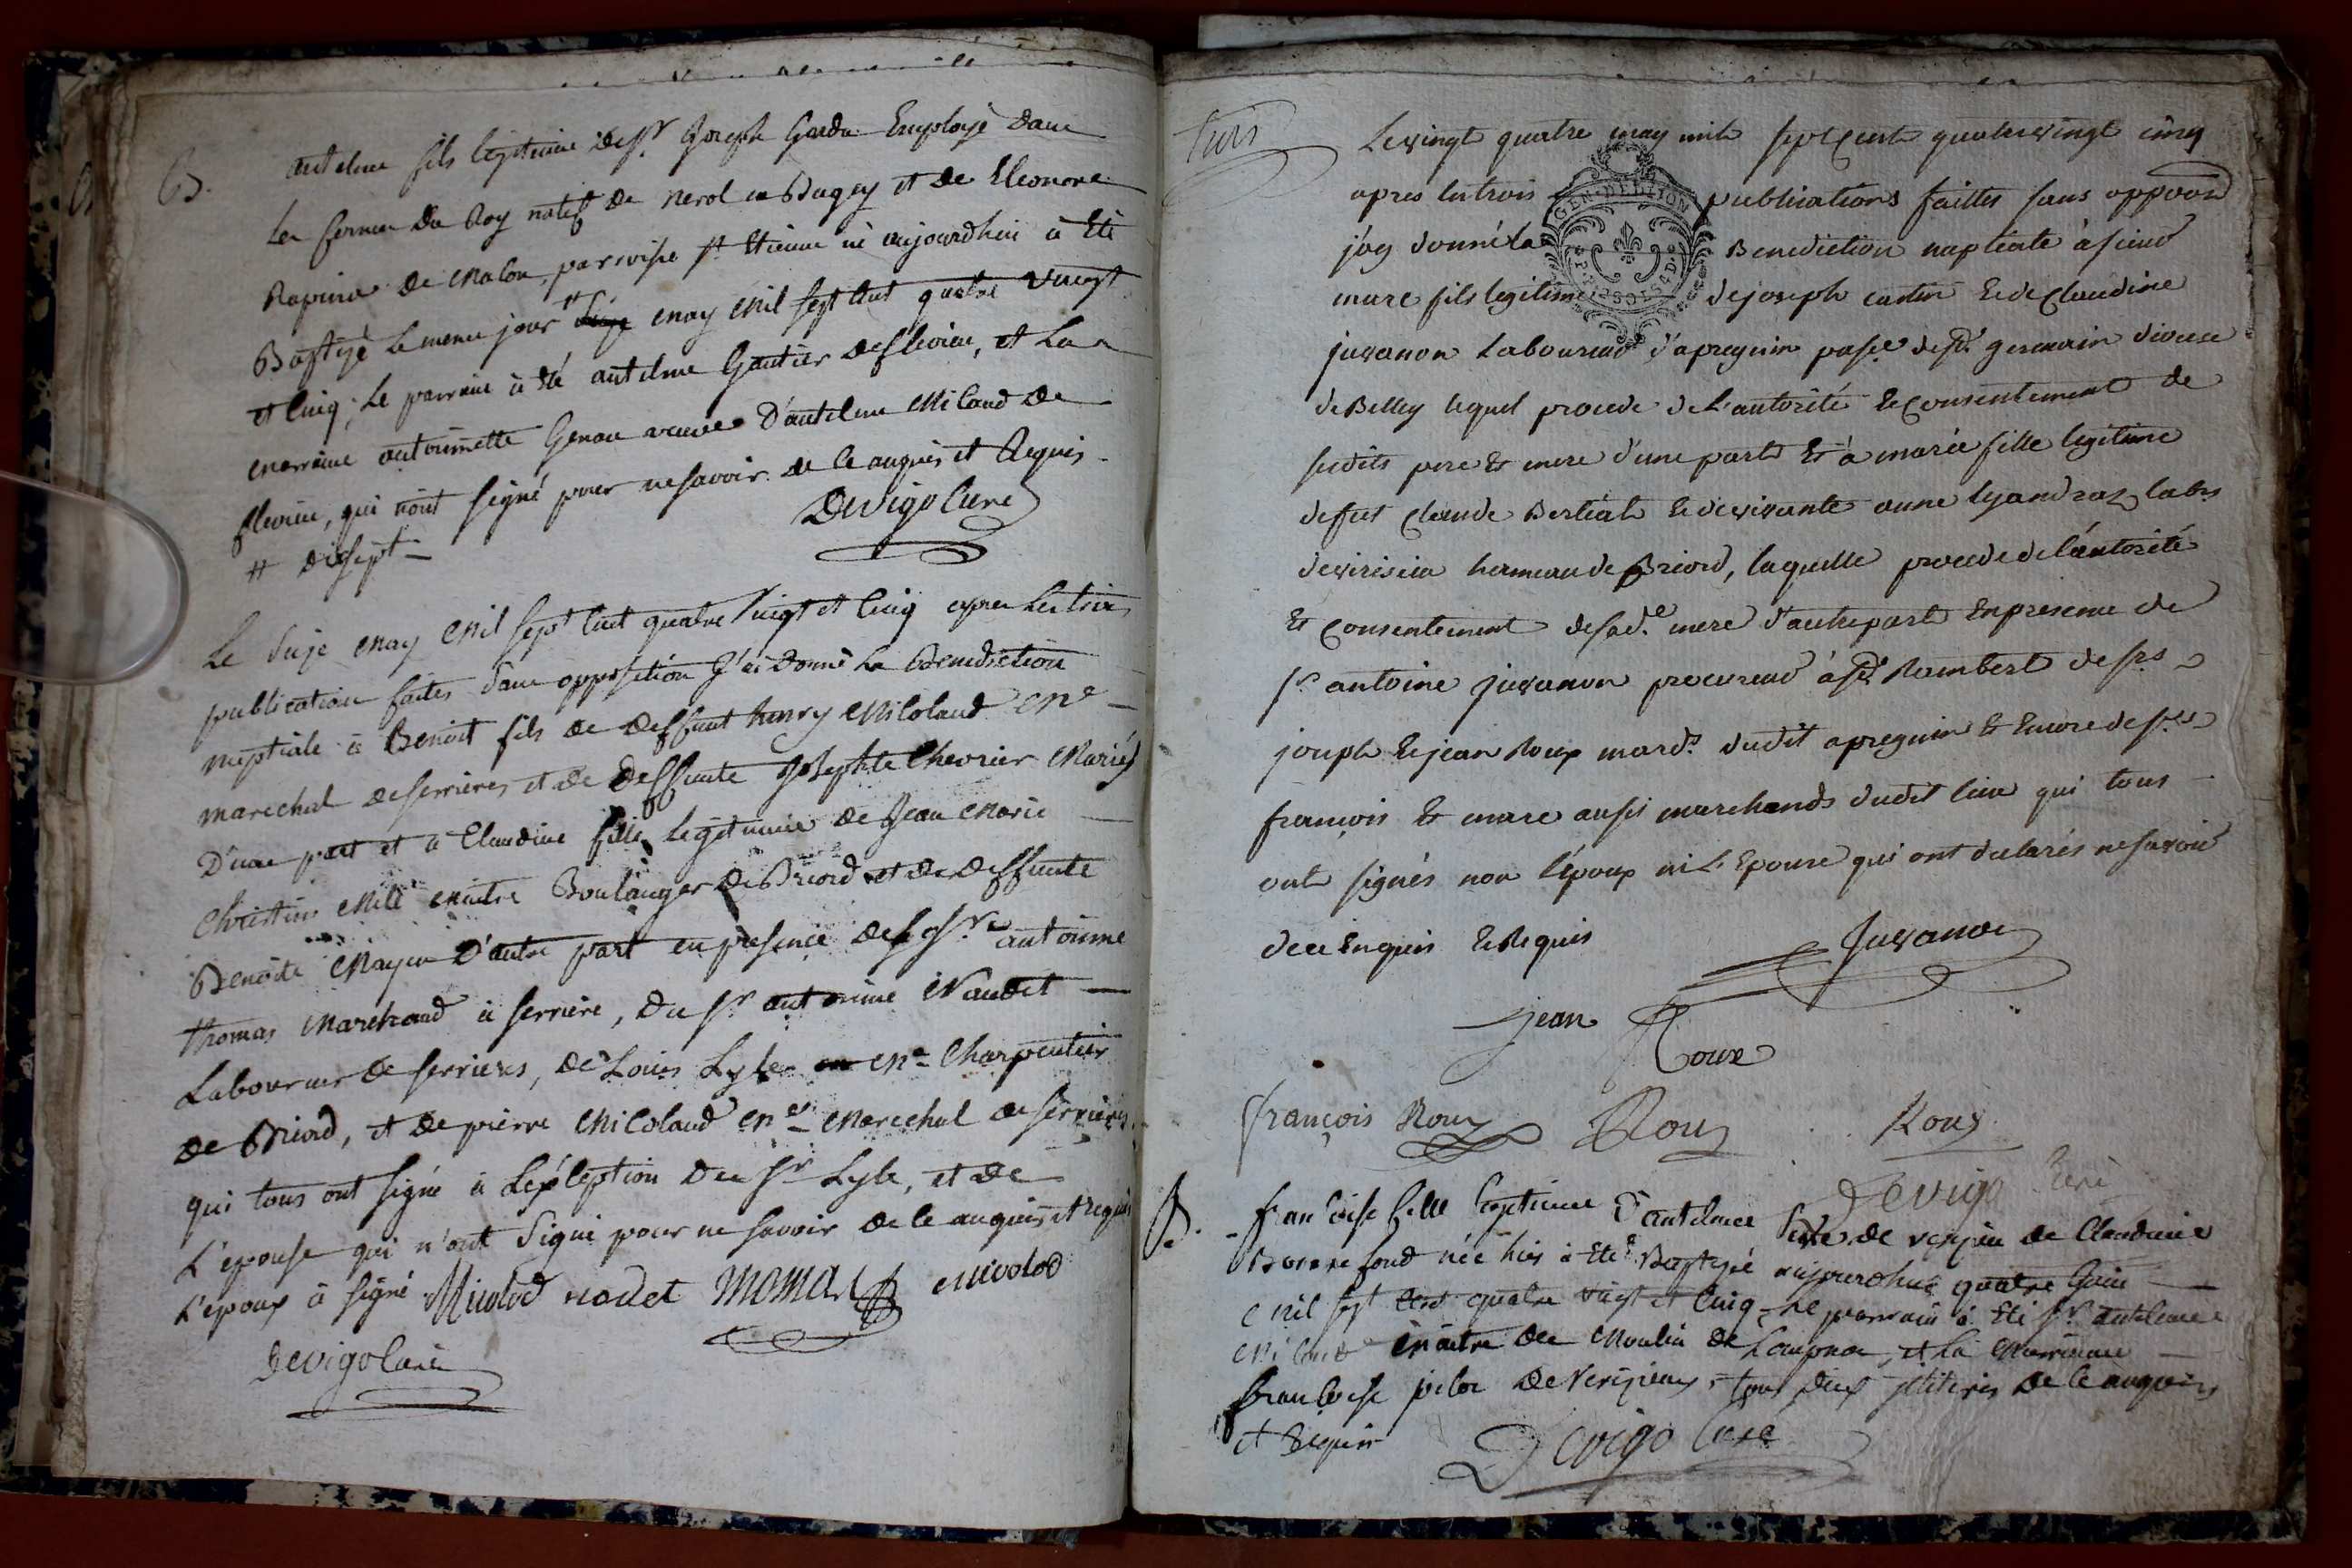 B. antelme fils legitime de Sr. Joseph Garda Employé dans
Les fermes du Roy natif de nerol en Bugey et de Eleonore
Rapina de Malou parroisse st Etienne né aujourdhui à Eté
Baptizé Le meme jour # may Mil sept Cent quatre vingt
et Cinq; Le parrain à été antelme Gautier de flevieu, et La
marraine antoinette Genou veuve D'antelme Milaud de
flevieu, qui n'ont signé pour ne savoir de ce anquis et Requis
# dissept
Devigo Curé
Le Seize may Mil sept Cent quatre vingt et Cinq apres Les trois
publication faites sans opposition J'ai donné La Benediction
nuptiale à Benoit fils de deffunt henry Micoland Me
marechal de serrieres et de deffunte Josephte Chevrier Mariés
D'une part et à Claudine fille legitimée de Jean Marie
Christin maitre Boulanger de Briord et de deffunte
Benoite Mayeu D'autre part en presence de Sr. antoine
thomas Marchand à serriere, Du Sr antoine Naudet
Laboureur de serrieres, de Louis Lyle Me Charpentier
de Briord, et de pierre Micoland Me Marechal de serrieres
qui tous ont signé à L'exception Du Sr Lyle, et de
L'epouse qui n'ont signé pour ne savoir de ce anquis et requis
L'epoux à signé Micolod nodet Thomas Micolod
Devigo Curé
Le vingt quatre may mil sept cent quatre vingt cinq
apres les trois publications faittes sans oppôon
j'ay donné la Benediction nuptiale à sieur
marc fils legitime de joseph cartin et de Claudine
juvanon Laboureur d'apregnin passe de st germain diocese
de Belley lequel procede de L'autorité et consentement de
sudits pere et mere d'une part et à marie fille legitime
de fut Claude Bertiat et de vivante anne Lyandraz labs
de virisieu hameau de Briord, laquelle procede de l'autorité
et consentement de sad.e mere d'autre part En presence de
sr antoine juvanon procureur à st Rambert de srs
joseph et jean Roux mards dudit apregnin et Encore de srs
françois et marc aussi marchands dudit lieu qui tous
ont signés non l'époux ni L'Epouse qui ont declarés ne savoir
de ce Enquis et Requis
Juvanon
jean Roux
françois Roux Roux Roux
Devigo Curé
B. francoise fille legitime d'antelme de verizieu de Claudine
Bonnefond née hier à Eté Baptizé aujourdhui quatre Juin
Mil sept Cent quatre vingt et Cinq Le parrain à Eté Sr. antelme
Milaud maitre du Moulin de et La Marraine
francoise de Verizieux, tous deux jlliterés de ce anquis
et Requis
Devigo Curé
GEN. DE DIJON